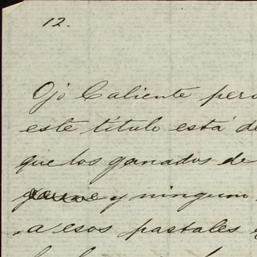 12.
Ojo Caliente per
este título está de
que los ganados de
y ninguno
a esos pastales